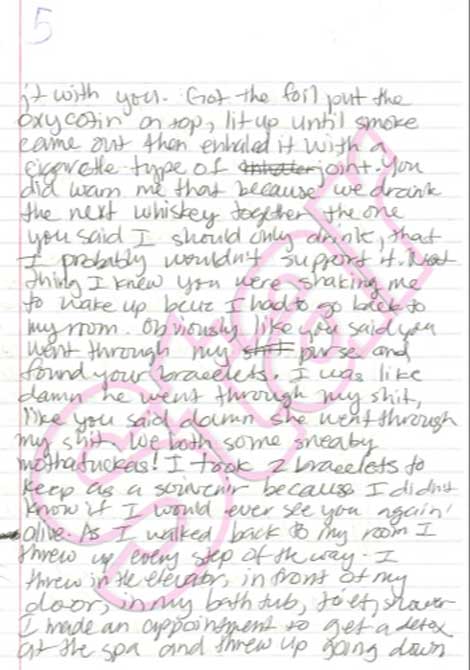 5
it with you. Got the foil put the
oxycotin on top, lit up until smoke
came out then enhaled it with a
cigarette type of joint. You
did warn me that because we drank
the next whiskey together the one
you said I should only drink, that
I probably wouldn't support it. Next
thing I knew you were shaking me
to wake up bcuz I had to go back to
my room. Obviously like you said you
went through my shit purse and
found your bracelets. I was like
damn he went through my shit,
like you said damn she went through
my shit. We both some sneaky
mothafuckas! I took 2 bracelets to
keep as a sovenir because I didn't
know if I would ever see you again
alive. As I walked back to my room I
threw up every step of the way. I
threw in the elevator, in front of my
door, in my bath tub, toilet, shower
I made an appointment to get a detox
at the spa and threw up going down
Star